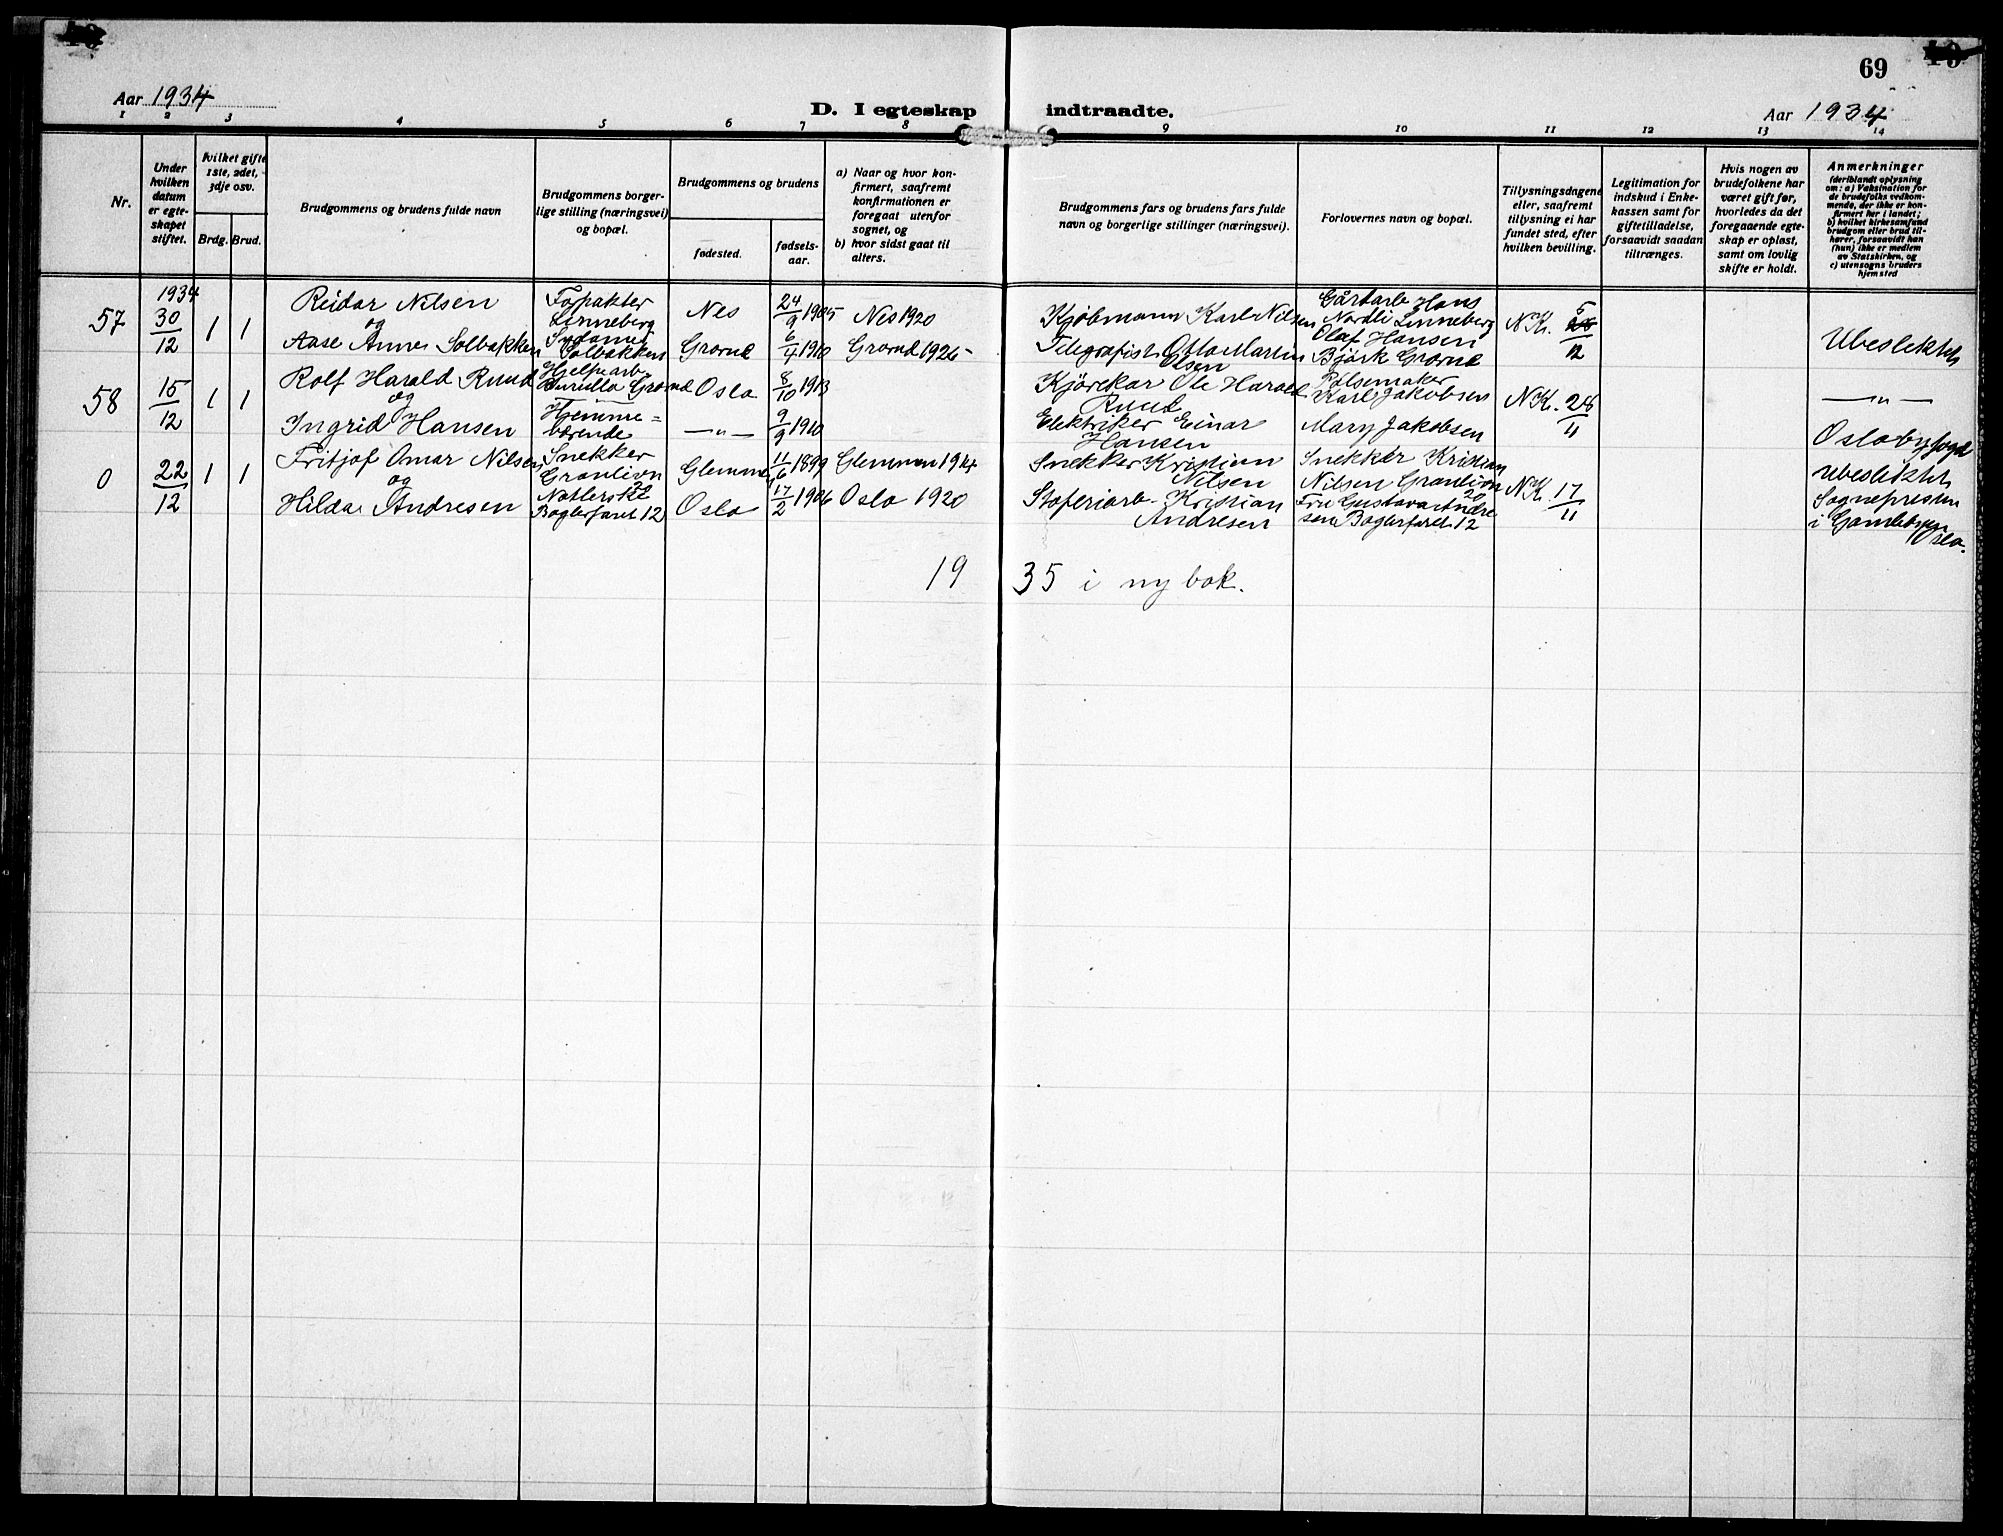 69
Aar 1934
D. I egteskap indtraadte.
Aar 1934
1 2 3 4 5 6 7 8 9 10 11 12 13 14
Nr.
Under hvilken datum er egteskapet stiftet.
hvilket gifte 1ste, 2det, 3dje osv.
Brdg. Brud.
Brudgommens og brudens fulde navn
Brudgommens borgerlige stilling (næringsvei) og bopæl.
Brudgommens og brudens
fødested.
fødselsaar.
a) Naar og hvor konfirmert, saafremt konfirmationen er foregaat utenfor sognet, og
b) hvor sidst gaat til alters.
Brudgommens fars og brudens fars fulde navn og borgerlige stillinger (næringsvei).
Forlovernes navn og bopæl.
Tillysningsdagene eller, saafremt tillysning ei har fundet sted, efter hvilken bevilling.
Legitimation for indskud i Enkekassen samt for giftetilladelse, forsaavidt saadan tiltrænges.
Hvis nogen av brudefolkene har været gift før, hvorledes da det foregaaende egteskap er opløst, samt om lovlig skifte er holdt.
Anmerkninger
(deriblandt oplysning om: a) Vaksination for de brudefolks vedkommende, der ikke er konfirmert her i landet; b) hvilket kirkesamfund brudgom eller brud tilhører, forsaavidt han (hun) ikke er medlem av Statskirken, og c) utensogns bruders hjemsted
1934
57 30/12 1 1 Reidar Nilsen Linneberg Nes 24/9 1905 Nes 1920 Kjøbmann Karl Nilsen Gårdarb Hans Nordli Linneberg N.K. 5/12
og
Aase Anne Solbakken Solbakken Grorud 6/4 1910 Grorud 1926 Telegrafist Otto Martin Olsen Olaf Hansen Bjørk Grorud Ubeslektet
58 15/12 1 1 Rolf Harald Ruud Hjelpearb. Grorud Oslo 8/10 1913 Kjørekar Ole Harald Ruud Pølsemaker Karl Jakobsen N.K. 28/11 —"—
og
Ingrid Hansen Hjemmeværende —"— 9/9 1910 Elektriker Einar Hansen Mary Jakobsen Oslo byfogd
0 22/12 1 1 Fritjof Omar Nilsen Snekker Granlivn Glemmen 11/6 1899 Glemmen 1914 Snekker Kristian Nilsen Snekker Kristian Nilsen Granlivn 20 N.K. 17/11 Ubeslektet
og
Hilda Andresen Baglerfaret 12 Oslo 17/2 1906 Oslo 1920 Kristian Andresen Fru Gustava Andresen Baglerfaret 12 Sognepresten i Gamlebyen Oslo.
1935 i ny bok.